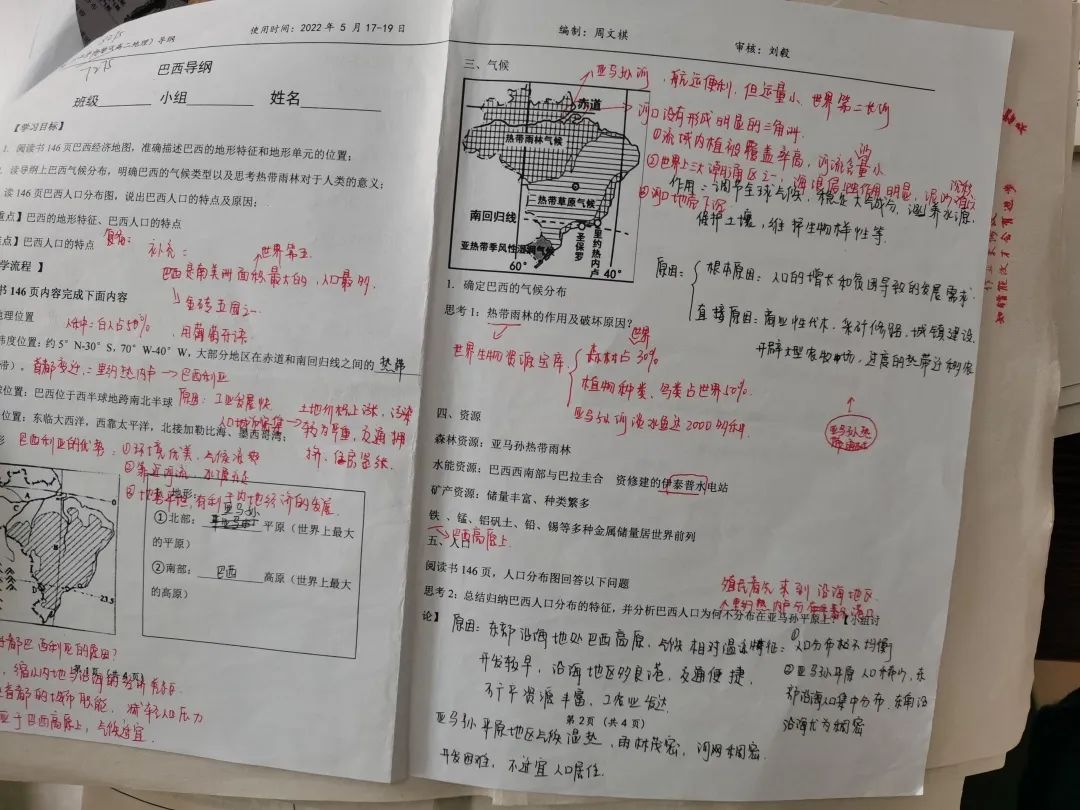 （高二地理）导纲
使用时间：2022 年 5 月 17-19 日
编制：周文祺
审核：刘毅
巴西导纲
班级 小组 姓名
【学习目标】
1. 阅读书 146 页巴西经济地图，准确描述巴西的地形特征和地形单元的位置；
读导纲上巴西气候分布，明确巴西的气候类型以及思考热带雨林对于人类的意义；
读 146 页巴西人口分布图，说出巴西人口的特点及原因；
重点】巴西的地形特征、巴西人口的特点
点】巴西人口的特点
补充：
世界第五
学流程 】
巴西是南美洲面积最大的，人口最多
书 146 页内容完成下面内容
金砖五国之一
地理位置
人种：白人占50%
用葡萄牙语
纬度位置：约 5° N-30° S，70° W-40° W，大部分地区在赤道和南回归线之间的 热带
带）。
首都变迁：里约热内卢→巴西利亚
位置：巴西位于西半球地跨南北半球
原因：工业发展快
土地价格上涨，污染
位置：东临大西洋，西靠太平洋，北接加勒比海、墨西哥湾；
较为严重，交通拥
挤，住房紧张
巴西利亚的优势：①环境优美，气候凉爽
②靠近河流，水源充足
③地势平坦，有利于内地经济的发展
地形：
①北部： 亚马孙 平原（世界上最大
的平原）
②南部： 巴西 高原（世界上最大
的高原）
0
23.5
都巴西利亚的原因？
第 1 页（共 4 页）
缩小内地与沿海的经济差距
首都的城市职能，减轻人口压力
于巴西高原上，气候适宜
三、气候
亚马孙河，航运便利，但运量小、世界第二长河
河口没有形成明显的三角洲
①流域内植被覆盖率高，河流含沙量小
②世界上三大潮涌区之一，海浪侵蚀作用明显，泥沙难沉积
③河口地带下沉
赤道
热带雨林气候
热带草原气候
南回归线
亚热带季风性湿润气候
圣保罗
里约热内卢
60°
40°
作用：调节全球气候，稳定大气成分，涵养水源，
保护土壤，维护生物多样性等.
原因：
根本原因：人口的增长和贫困导致的发展需求.
直接原因：商业性伐木，采矿修路，城镇建设
开辟大型农牧场，过度的热带迁移农
1．确定巴西的气候分布
思考 1：热带雨林的作用及破坏原因？
世界生物资源宝库
森林占世界30%
植物种类、鸟类占世界50%
亚马孙河淡水鱼达2000多种
四、资源
森林资源：亚马孙热带雨林
水能资源：巴西西南部与巴拉圭合 资修建的伊泰普水电站
矿产资源：储量丰富、种类繁多
铁 、锰、铝矾土、铅、锡等多种金属储量居世界前列
巴西高原上
五、人口
阅读书 146 页，人口分布图回答以下问题
殖民者先来到沿海地区
思考 2：总结归纳巴西人口分布的特征，并分析巴西人口为何不分布在亚马孙平原上？【小组讨
论】
原因：东部沿海地处巴西高原，气候相对温凉
开发较早，沿海地区多良港，交通便捷，
矿产资源丰富，工农业发达
特征：①人口分布极不均衡
②亚马孙平原人口稀少，东
部沿海人口集中分布，东南沿
沿海尤为稠密
第 2 页 （共 4 页）
亚马孙平原地区气候湿热，雨林茂密，河网稠密
开发困难，不适宜人口居住.